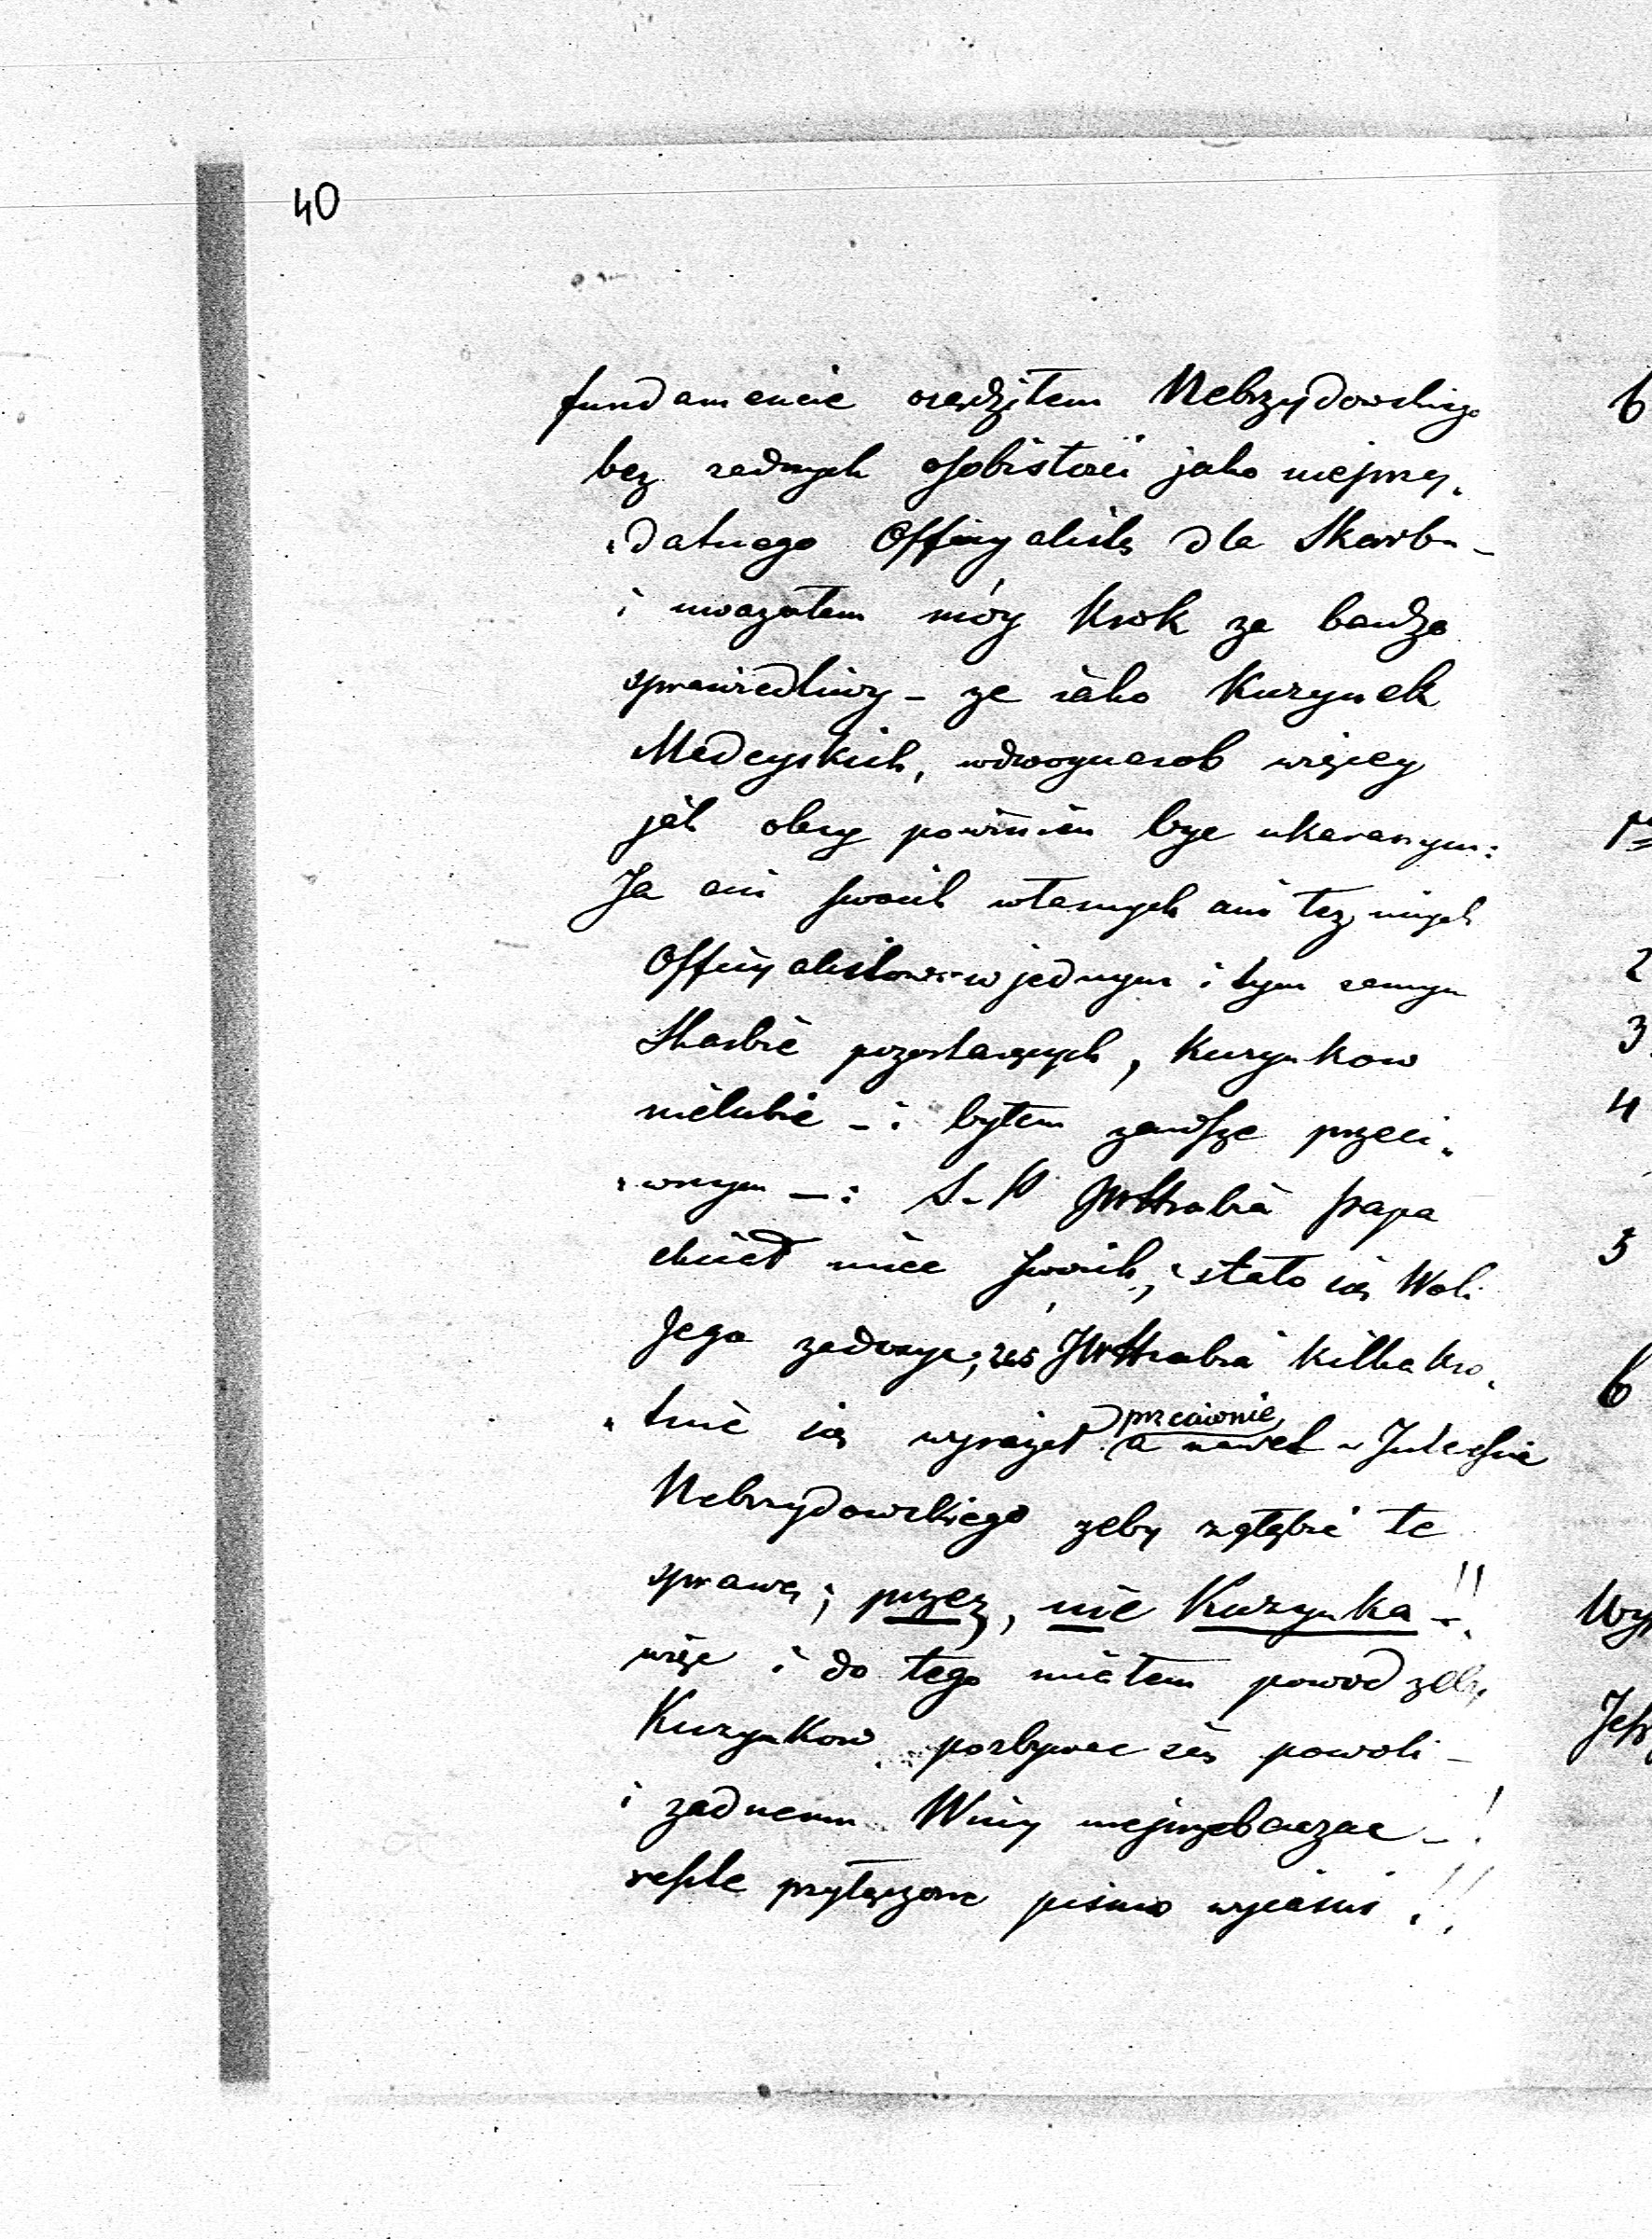 40
fundamencie osądziłem Nebrzydowskiego
bez zadnych osobistosci jako nieprzy„
„datnego Officyalistę dla Skarbu –
i uwazałem móy Krok za bardzo
sprawiedliwy – ze iako Kuzynek
Medeyskich, wdwoynasob więcey
jak obcy powinien bye ukaranym:
Ja ani swoich własnych ani tez innych
Officyalistow w jednym i tym samym
Skarbie pozostaiących, Kuzynkow
nielubie – i byłem zawsze przeci„
„wnym –: S. P JWHrabia papa
chciał miec swoich, i stało się Woli
Jego zadosyc; zas JWHrabia kilkakro„
„tnie się wyrazał przeciwnie, a nawet w Interessie
Nebrzydowskiego zeby zgłębic te
sprawę; przez, nie Kuzynka –!!
więc i do tego miałem powod zeby
Kuzynkow pozbywac się powoli –
i zadnemu Winy nieprzebaczac –!
reszte przyłączone pismo wyiasni !!
b
2
3
4
5
6